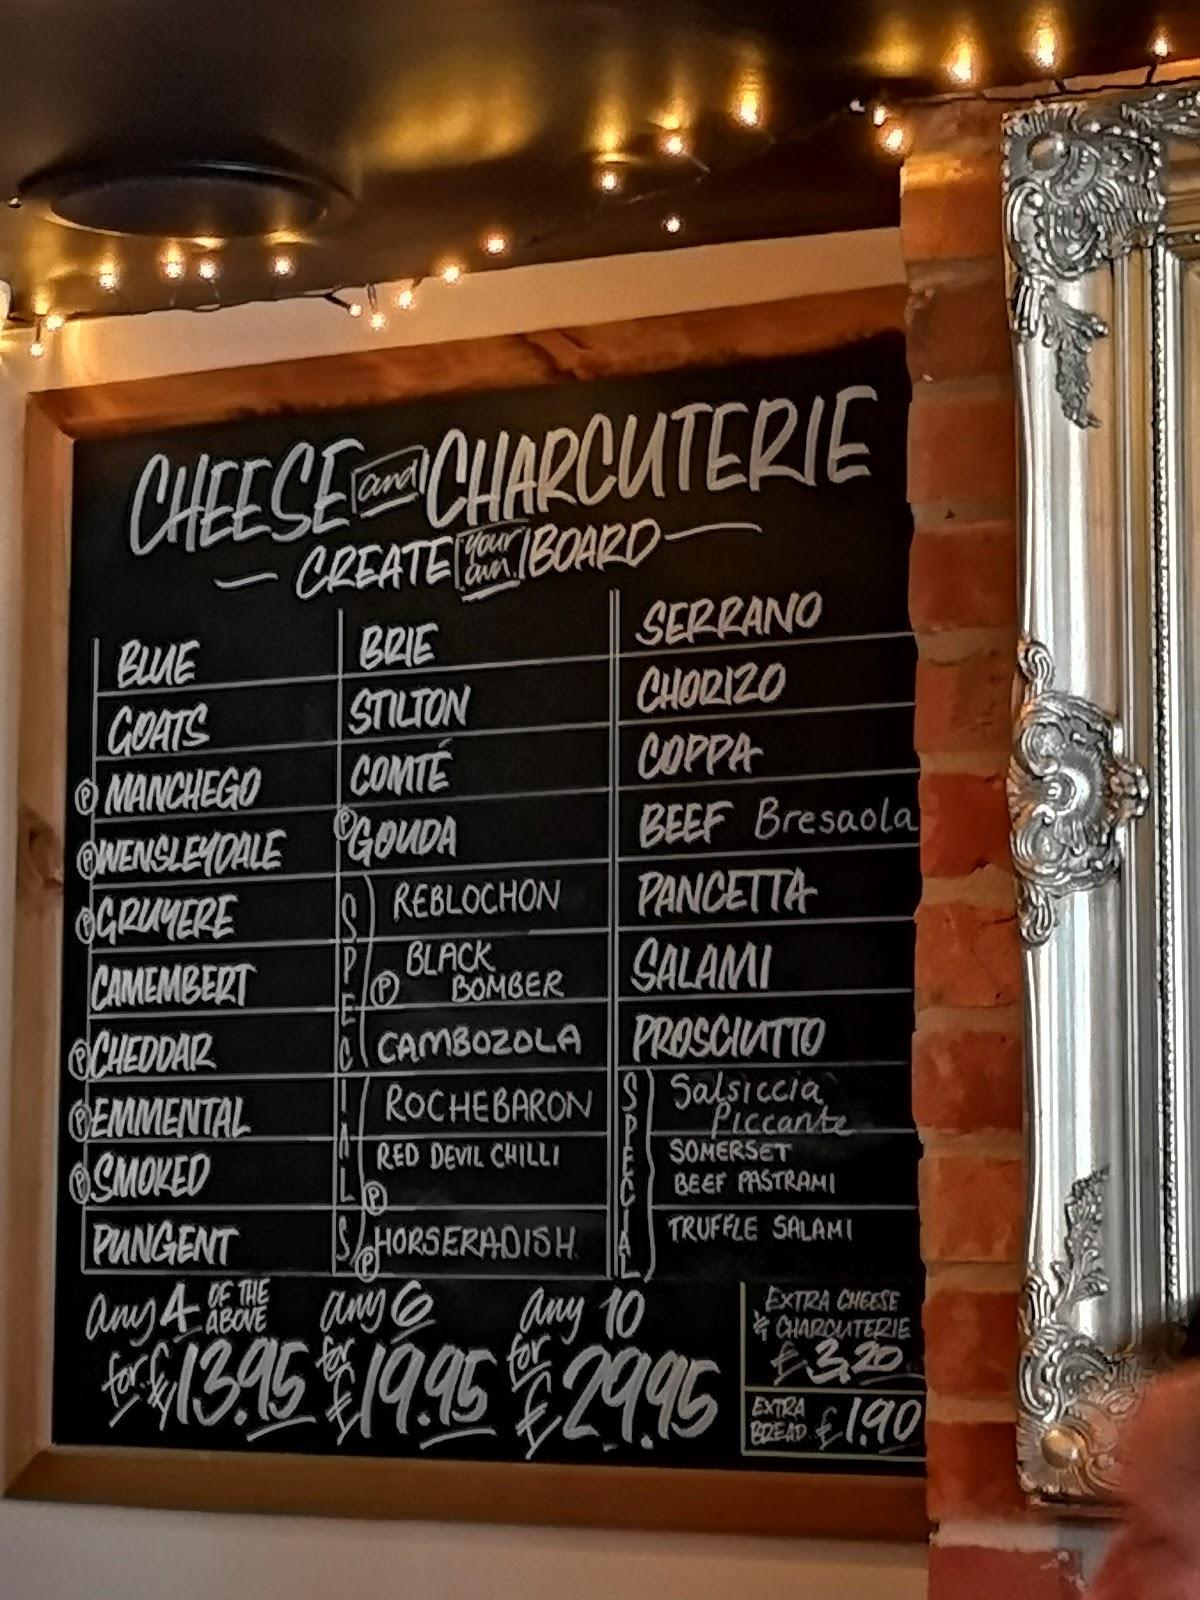 CHEESE and CHARCUTERIE
CREATE your own BOARD
BLUE
GOATS
Ⓟ MANCHEGO
Ⓟ WENSLEYDALE
Ⓟ GRUYERE
CAMEMBERT
Ⓟ CHEDDAR
Ⓟ EMMENTAL
Ⓟ SMOKED
PUNGENT
BRIE
STILTON
COMTÉ
Ⓟ GOUDA
SPECIALS
REBLOCHON
BLACK
Ⓟ BOMBER
CAMBOZOLA
ROCHEBARON
RED DEVIL CHILLI
Ⓟ
Ⓟ HORSERADISH
SERRANO
CHORIZO
COPPA
BEEF Bresaola
PANCETTA
SALAMI
PROSCIUTTO
SPECIAL
Salsiccia
Piccante
SOMERSET
BEEF PASTRAMI
TRUFFLE SALAMI
any 4 OF THE
ABOVE
for £13.95
any 6
for £19.95
any 10
for £29.95
EXTRA CHEESE
& CHARCUTERIE
£3.20
EXTRA
BREAD £1.90